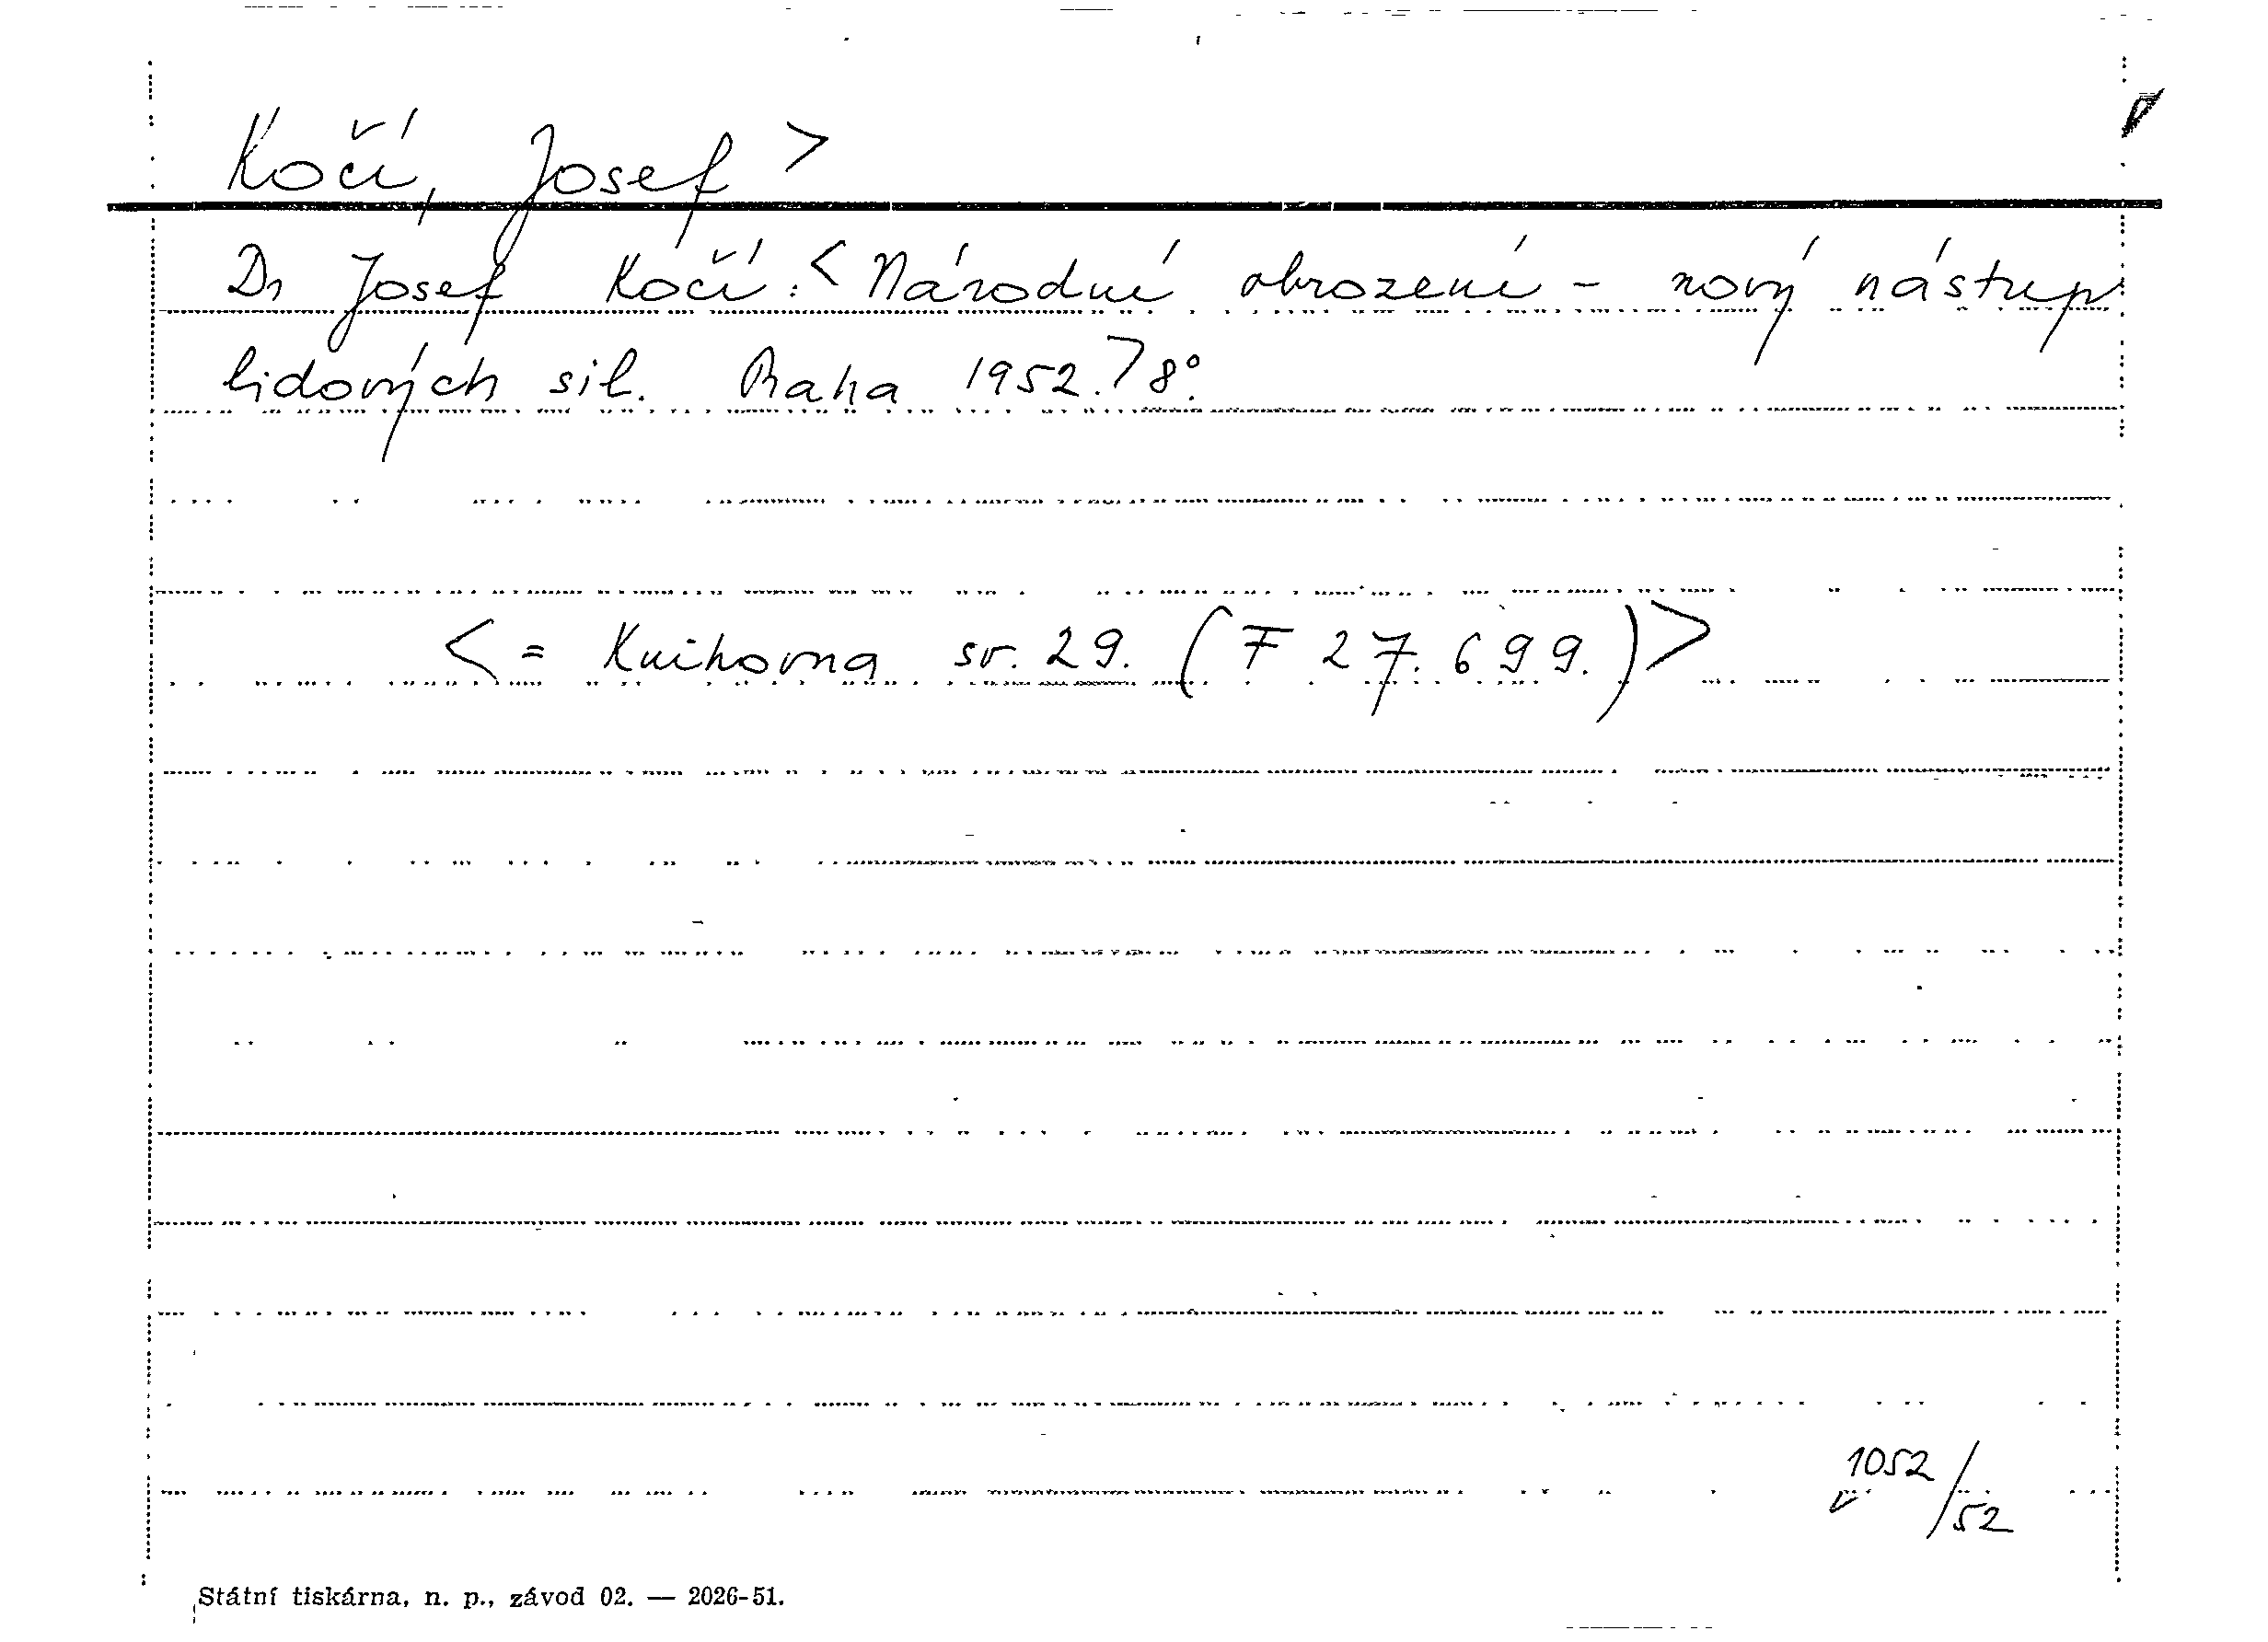 Kočí, Josef >
Dr Josef Kočí: < Národní obrození - nový nástup
lidových sil. Praha 1952. > 8°.
< = Knihovna sv. 29. (F 27.699.) >
1052/52
Státní tiskárna, n. p., závod 02. — 2026-51.